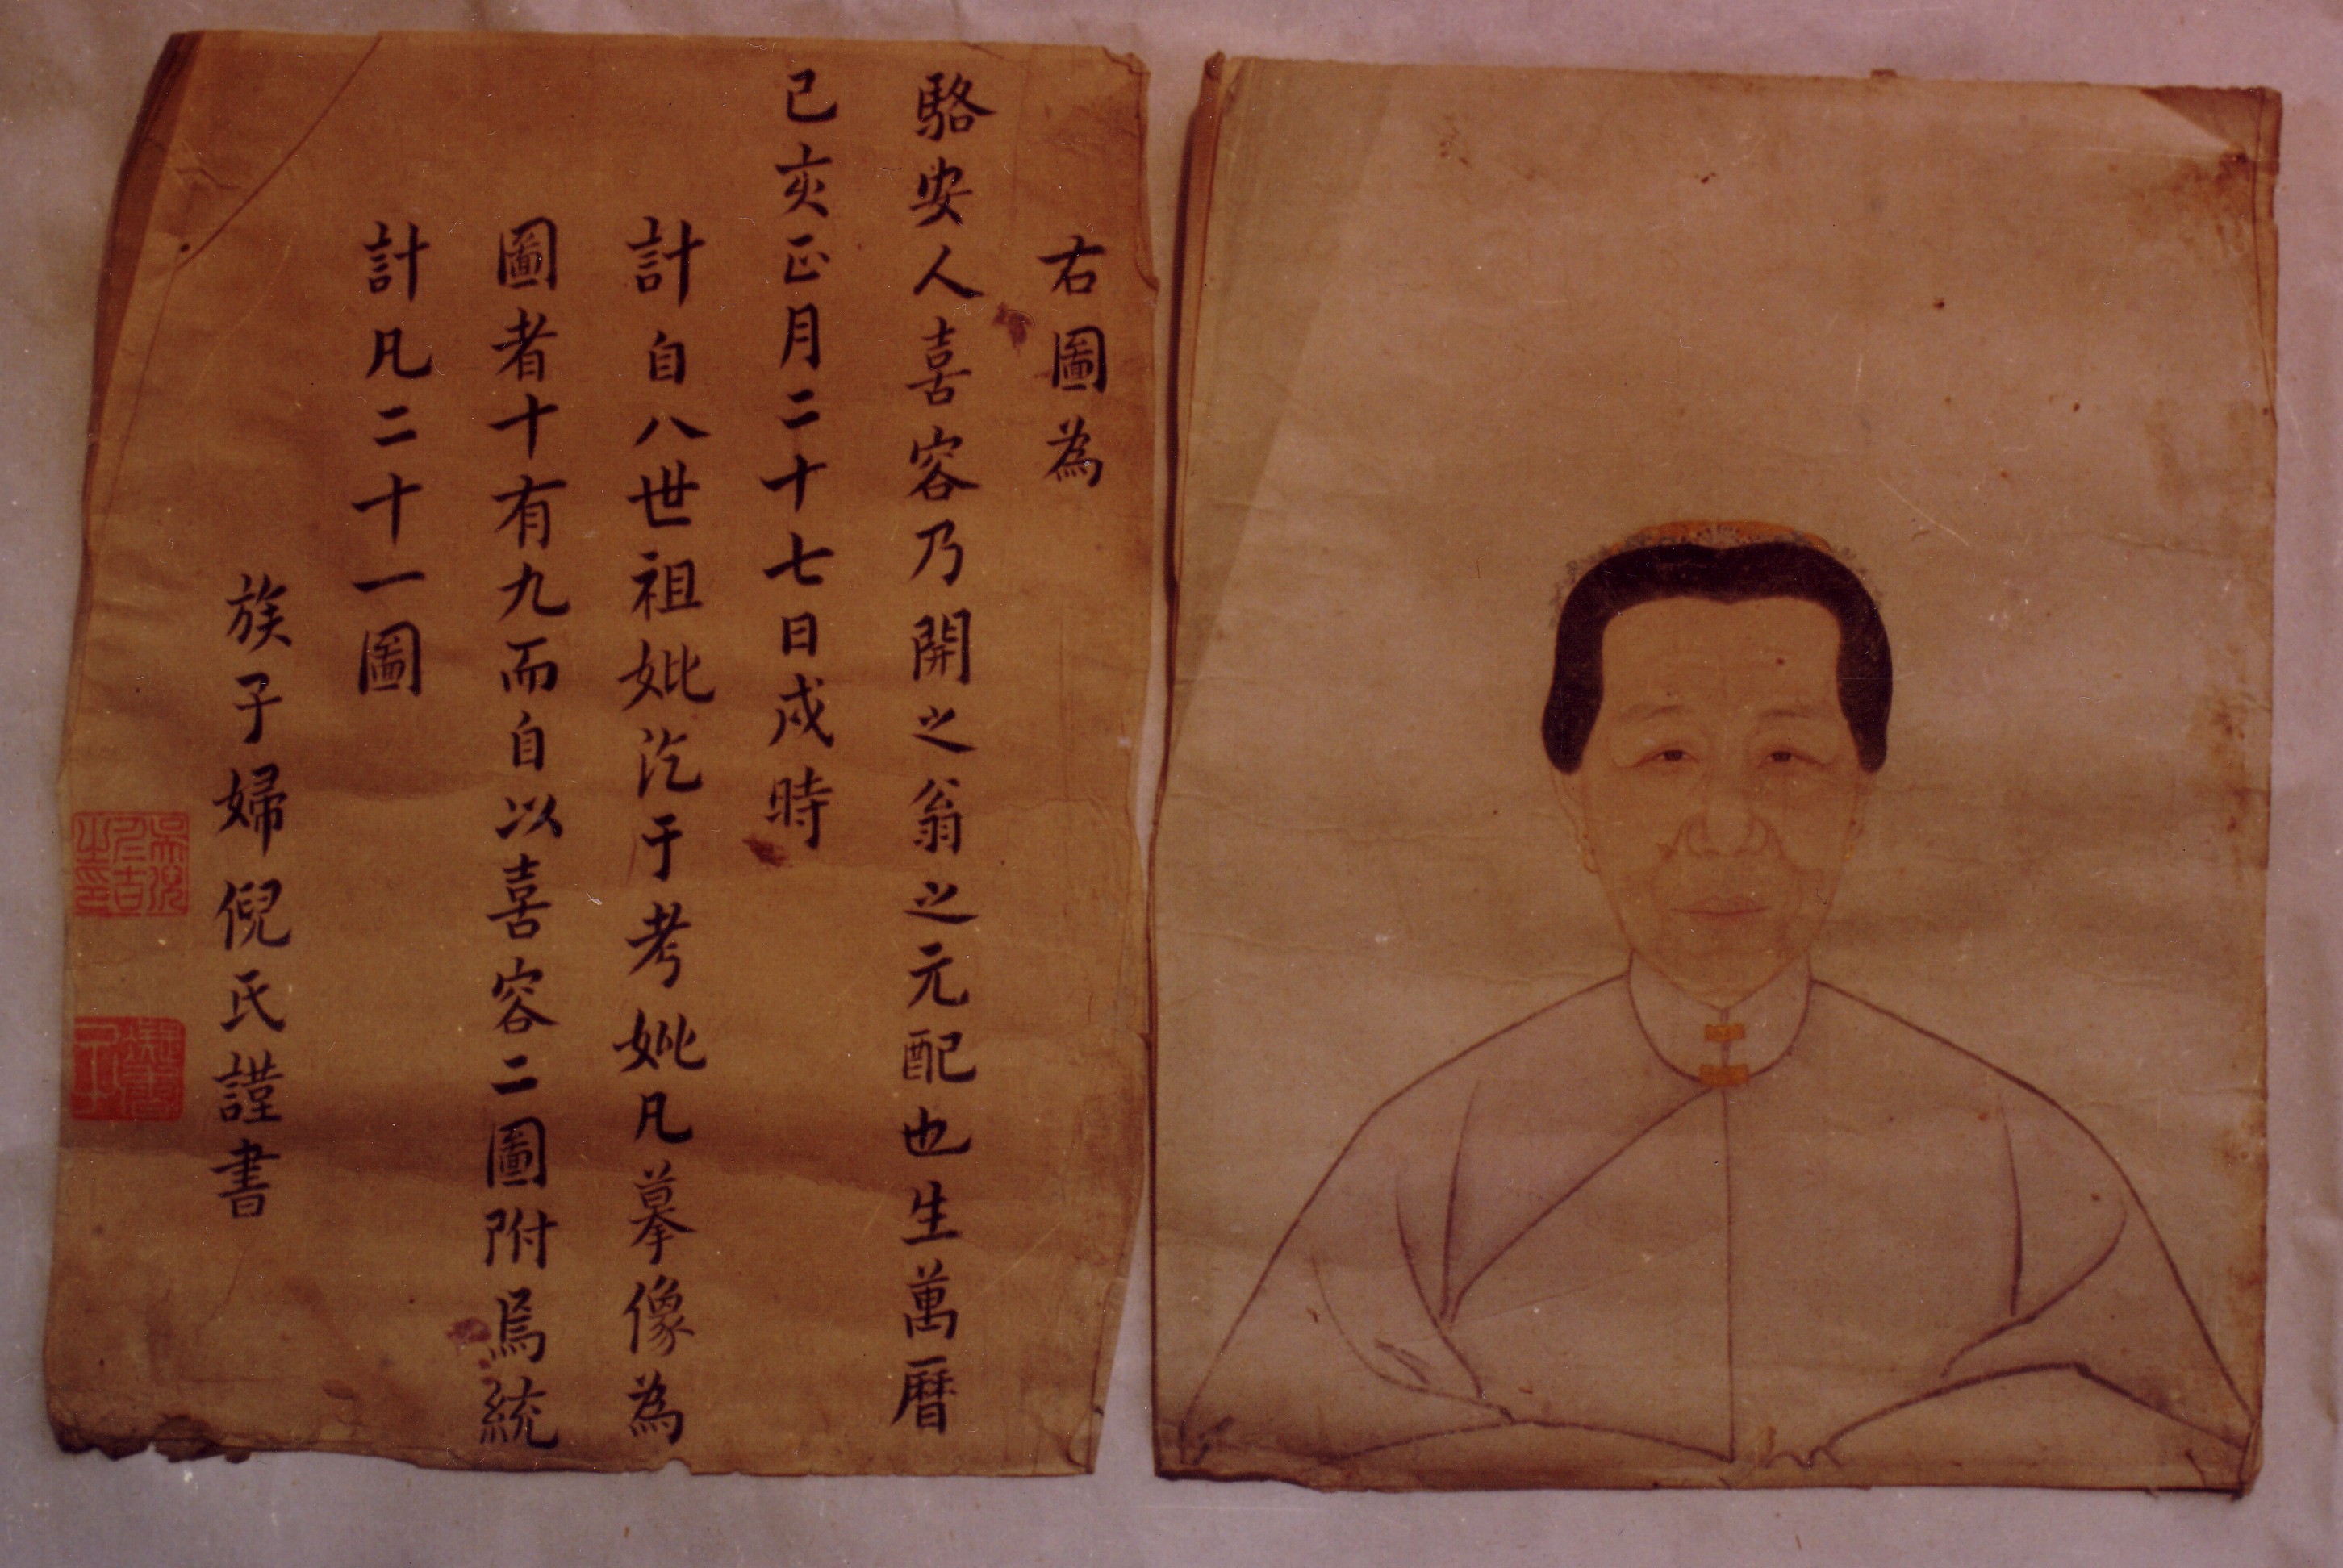 右圖為
駱安人喜容乃開之翁之元配也生萬曆
己亥正月二十七日戍時
計自八世祖妣汔于考妣凡摹像為
圖者十有九而自以喜容二圖附焉統
計凡二十一圖
族子婦倪氏謹書